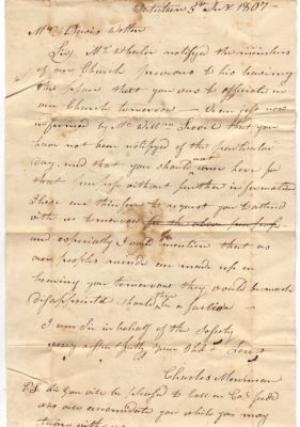 5th 1807
Mr
Sir, Mr Wheeler notified the members
of our Church previous to his leaving
the place that you was to officiate in
our Church tomorrow — I am just now
informed by Mr William that you
have not been notified of the particular
day, and that you should not come here for
that purpose without further information
These are therefore to request you to attend
with us tomorrow for the above purpose
and especially I would mention that as
our peoples minds are made up on
hearing you tomorrow they would be much
disappointed should they be a failure
I am Sir in behalf of the Society
very respectfully your
Charles Merriman
PS Sir you will be pleased to call on
who will accommodate you while you may